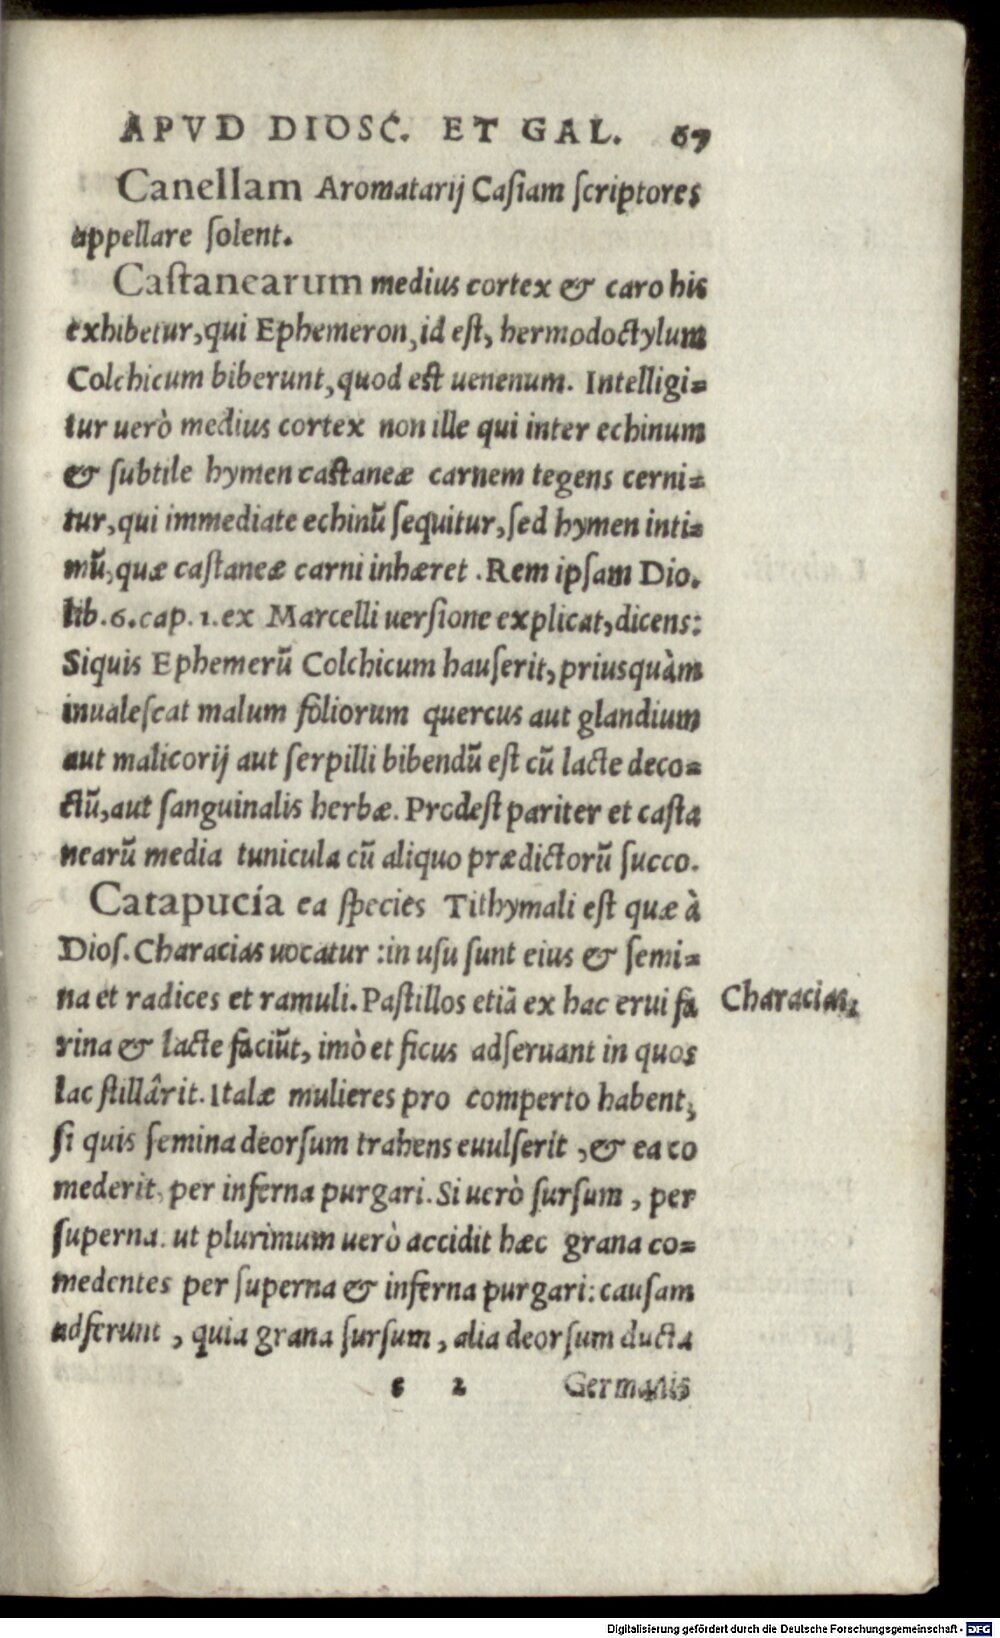 APVD DIOSC. ET GAL. 67
Canellam Aromatarij Casiam scriptores
appellare solent.
Castanearum medius cortex & caro his
exhibetur, qui Ephemeron, id est, hermodoctylum
Colchicum biberunt, quod est uenenum. Intelligi=
tur uerò medius cortex non ille qui inter echinum
& subtile hymen castaneæ carnem tegens cerni=
tur, qui immediate echinū sequitur, sed hymen inti=
mū, quæ castaneæ carni inhæret. Rem ipsam Dio.
lib. 6. cap. 1. ex Marcelli uersione explicat, dicens:
Siquis Ephemerū Colchicum hauserit, priusquàm
inualescat malum foliorum quercus aut glandium
aut malicorij aut serpilli bibendū est cū lacte deco=
ctū, aut sanguinalis herbæ. Prodest pariter et casta
nearū media tunicula cū aliquo prædictorū succo.
Catapucía ea species Tithymali est quæ à
Dios. Characias uocatur: in usu sunt eius & semi=
na et radices et ramuli. Pastillos etiā ex hac erui fa
Characias,
rina & lacte faciūt, imò et ficus adseruant in quos
lac stillârit. Italæ mulieres pro comperto habent,
si quis semina deorsum trahens euulserit, & ea co
mederit, per inferna purgari. Si uerò sursum, per
superna. ut plurimum uerò accidit hæc grana co=
medentes per superna & inferna purgari: causam
adferunt, quia grana sursum, alia deorsum ducta
2 Germanis
Digitalisierung gefördert durch die Deutsche Forschungsgemeinschaft - DFG